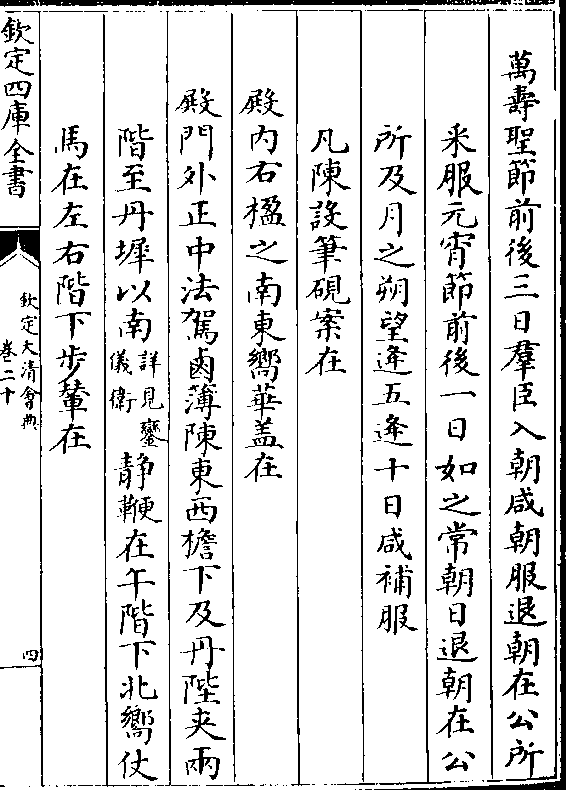 萬壽聖節前後三日羣臣入朝咸朝服退朝在公所
釆服元宵節前後一日如之常朝日退朝在公
所及月之朔望逄五逄十日咸補服
凡陳設筆硯案在
殿内右楹之南東嚮華盖在
殿門外正中法駕鹵簿陳東西檐下及丹陛夾兩
階至丹墀以南詳見鑾儀衛静鞭在午階下北嚮仗
馬在左右階下步輦在
欽定四庫全書
欽定大清會典
卷二十
四